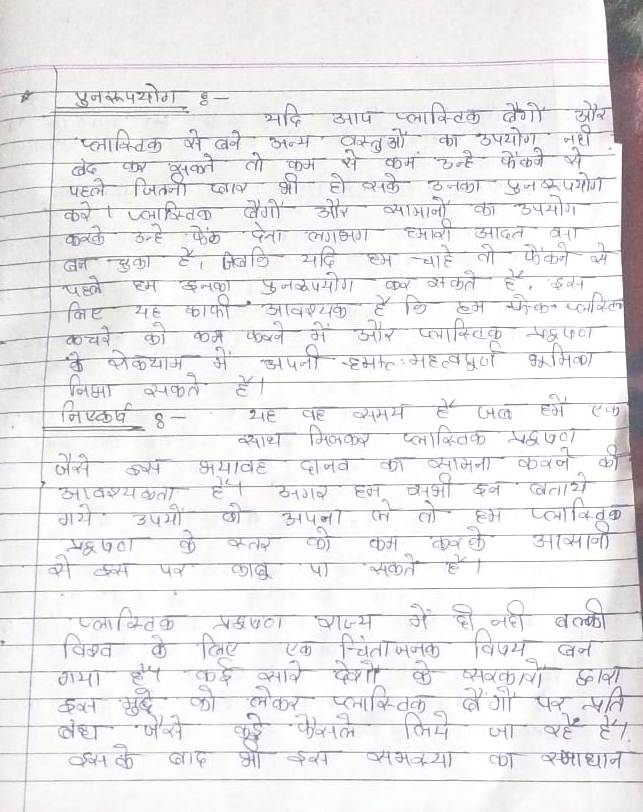 पुनरूपयोग :-
यदि आप प्लास्तिक बैगों और
प्लास्तिक से बने अन्य वस्तुओं का उपयोग नही
बंद कर सकते तो कम से कम उन्हे फेंकने से
पहले जितनी बार भी हो सके उनका पुनरूपयोग
करे। प्लास्तिक बैगों और सामानों का उपयोग
करके उन्हे फेंक देना लगभग हमारी आदत बन
बन चुका है, जबकि यदि हम चाहे तो फेंकने से
पहले हम इनका पुनरूपयोग कर सकते है, इस
लिए यह काफी आवश्यक है कि हम प्लास्तिक
कचरे को कम करने में और प्लास्तिक प्रदुषण
के रोकथाम में अपनी महत्वपुर्ण भुमिका
निभा सकते है।
निष्कर्ष :- यह वह समय है जब हमें एक
साथ मिलकर प्लास्तिक प्रदुषण
जैसे इस भयावह दानव का सामना करने की
आवश्यकता है। अगर हम सभी इन बताये
गये उपयों को अपना ले तो हम प्लास्तिक
प्रदुषण के स्तर को कम करके आसानी
से इस पर काबु पा सकते है।
प्लास्तिक प्रदुषण राज्य में ही नही बल्की
विश्व के लिए एक चिंताजनक विषय बन
गया है। कई सारे देशों के सरकारों द्वारा
इस मुद्दे को लेकर प्लास्तिक बैंगों पर प्रति
बंध जैसे कई फैसले लिये जा रहे है।
इसके बाद भी इस समस्या का समाधान